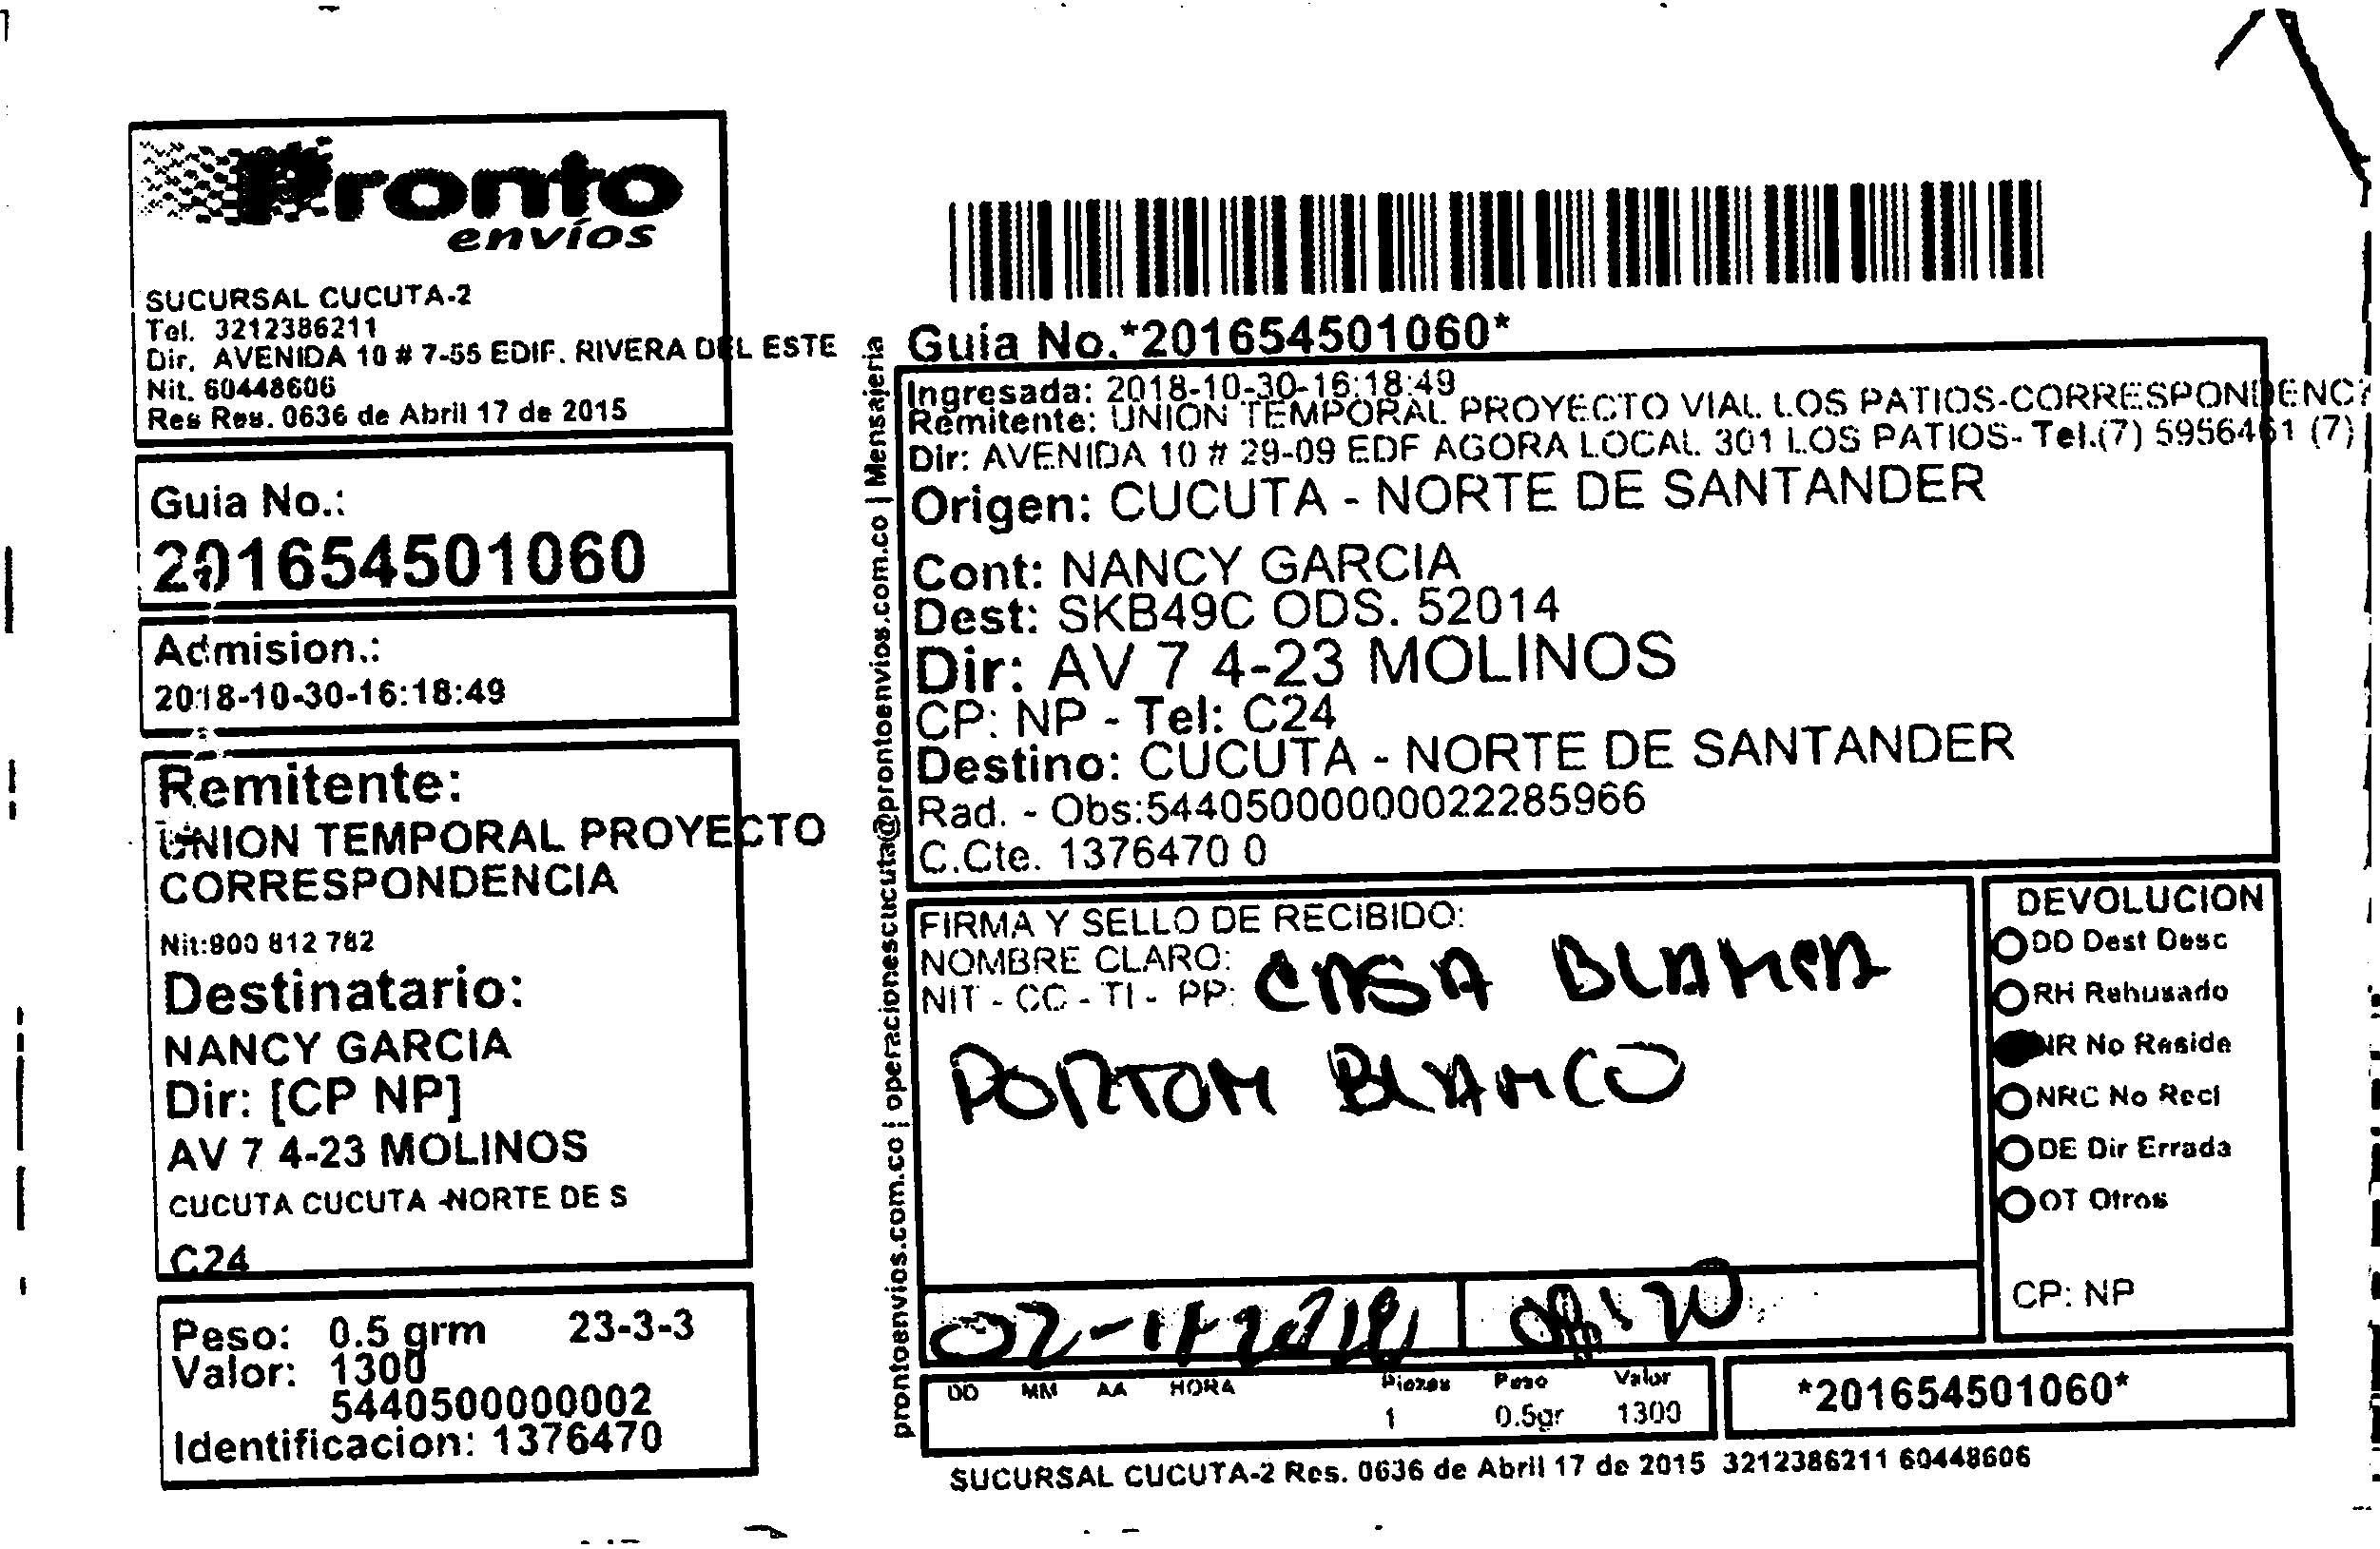 Pronto
envíos
SUCURSAL CUCUTA-2
Tel. 3212386211
Dir. AVENIDA 10 # 7-55 EDIF. RIVERA DEL ESTE
Nit. 60448606
Res Res. 0636 de Abril 17 de 2015
Guia No.:
201654501060
Admision.:
2018-10-30-16:18:49
Remitente:
UNION TEMPORAL PROYECTO
CORRESPONDENCIA
Nit:900 812 782
Destinatario:
NANCY GARCIA
Dir: [CP NP]
AV 7 4-23 MOLINOS
CUCUTA CUCUTA -NORTE DE S
C24
Peso: 0.5 grm 23-3-3
Valor: 1300
5440500000002
Identificacion: 1376470
prontoenvios.com.co | operacionescucuta@prontoenvios.com.co | Mensajeria
Guia No.*201654501060*
Ingresada: 2018-10-30-16:18:49
Remitente: UNION TEMPORAL PROYECTO VIAL LOS PATIOS-CORRESPONDENC
Dir: AVENIDA 10 # 29-09 EDF AGORA LOCAL 301 LOS PATIOS- Tel.(7) 5956461 (7)
Origen: CUCUTA - NORTE DE SANTANDER
Cont: NANCY GARCIA
Dest: SKB49C ODS. 52014
Dir: AV 7 4-23 MOLINOS
CP: NP - Tel: C24
Destino: CUCUTA - NORTE DE SANTANDER
Rad. - Obs:544050000000022285966
C.Cte. 1376470 0
FIRMA Y SELLO DE RECIBIDO:
NOMBRE CLARO:
NIT - CC - TI - PP:
CASA BLANCA
PORTON BLANCO
DEVOLUCION
DD Dest Desc
RH Rehusado
NR No Reside
NRC No Recl
DE Dir Errada
OT Otros
CP: NP
02-11-2018
DD MM AA HORA Piezas Peso Valor
1 0.5gr 1300
*201654501060*
SUCURSAL CUCUTA-2 Res. 0636 de Abril 17 de 2015 3212386211 60448606